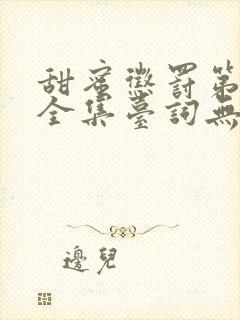 甜蜜懲罰第
全集臺詞無
邊兒